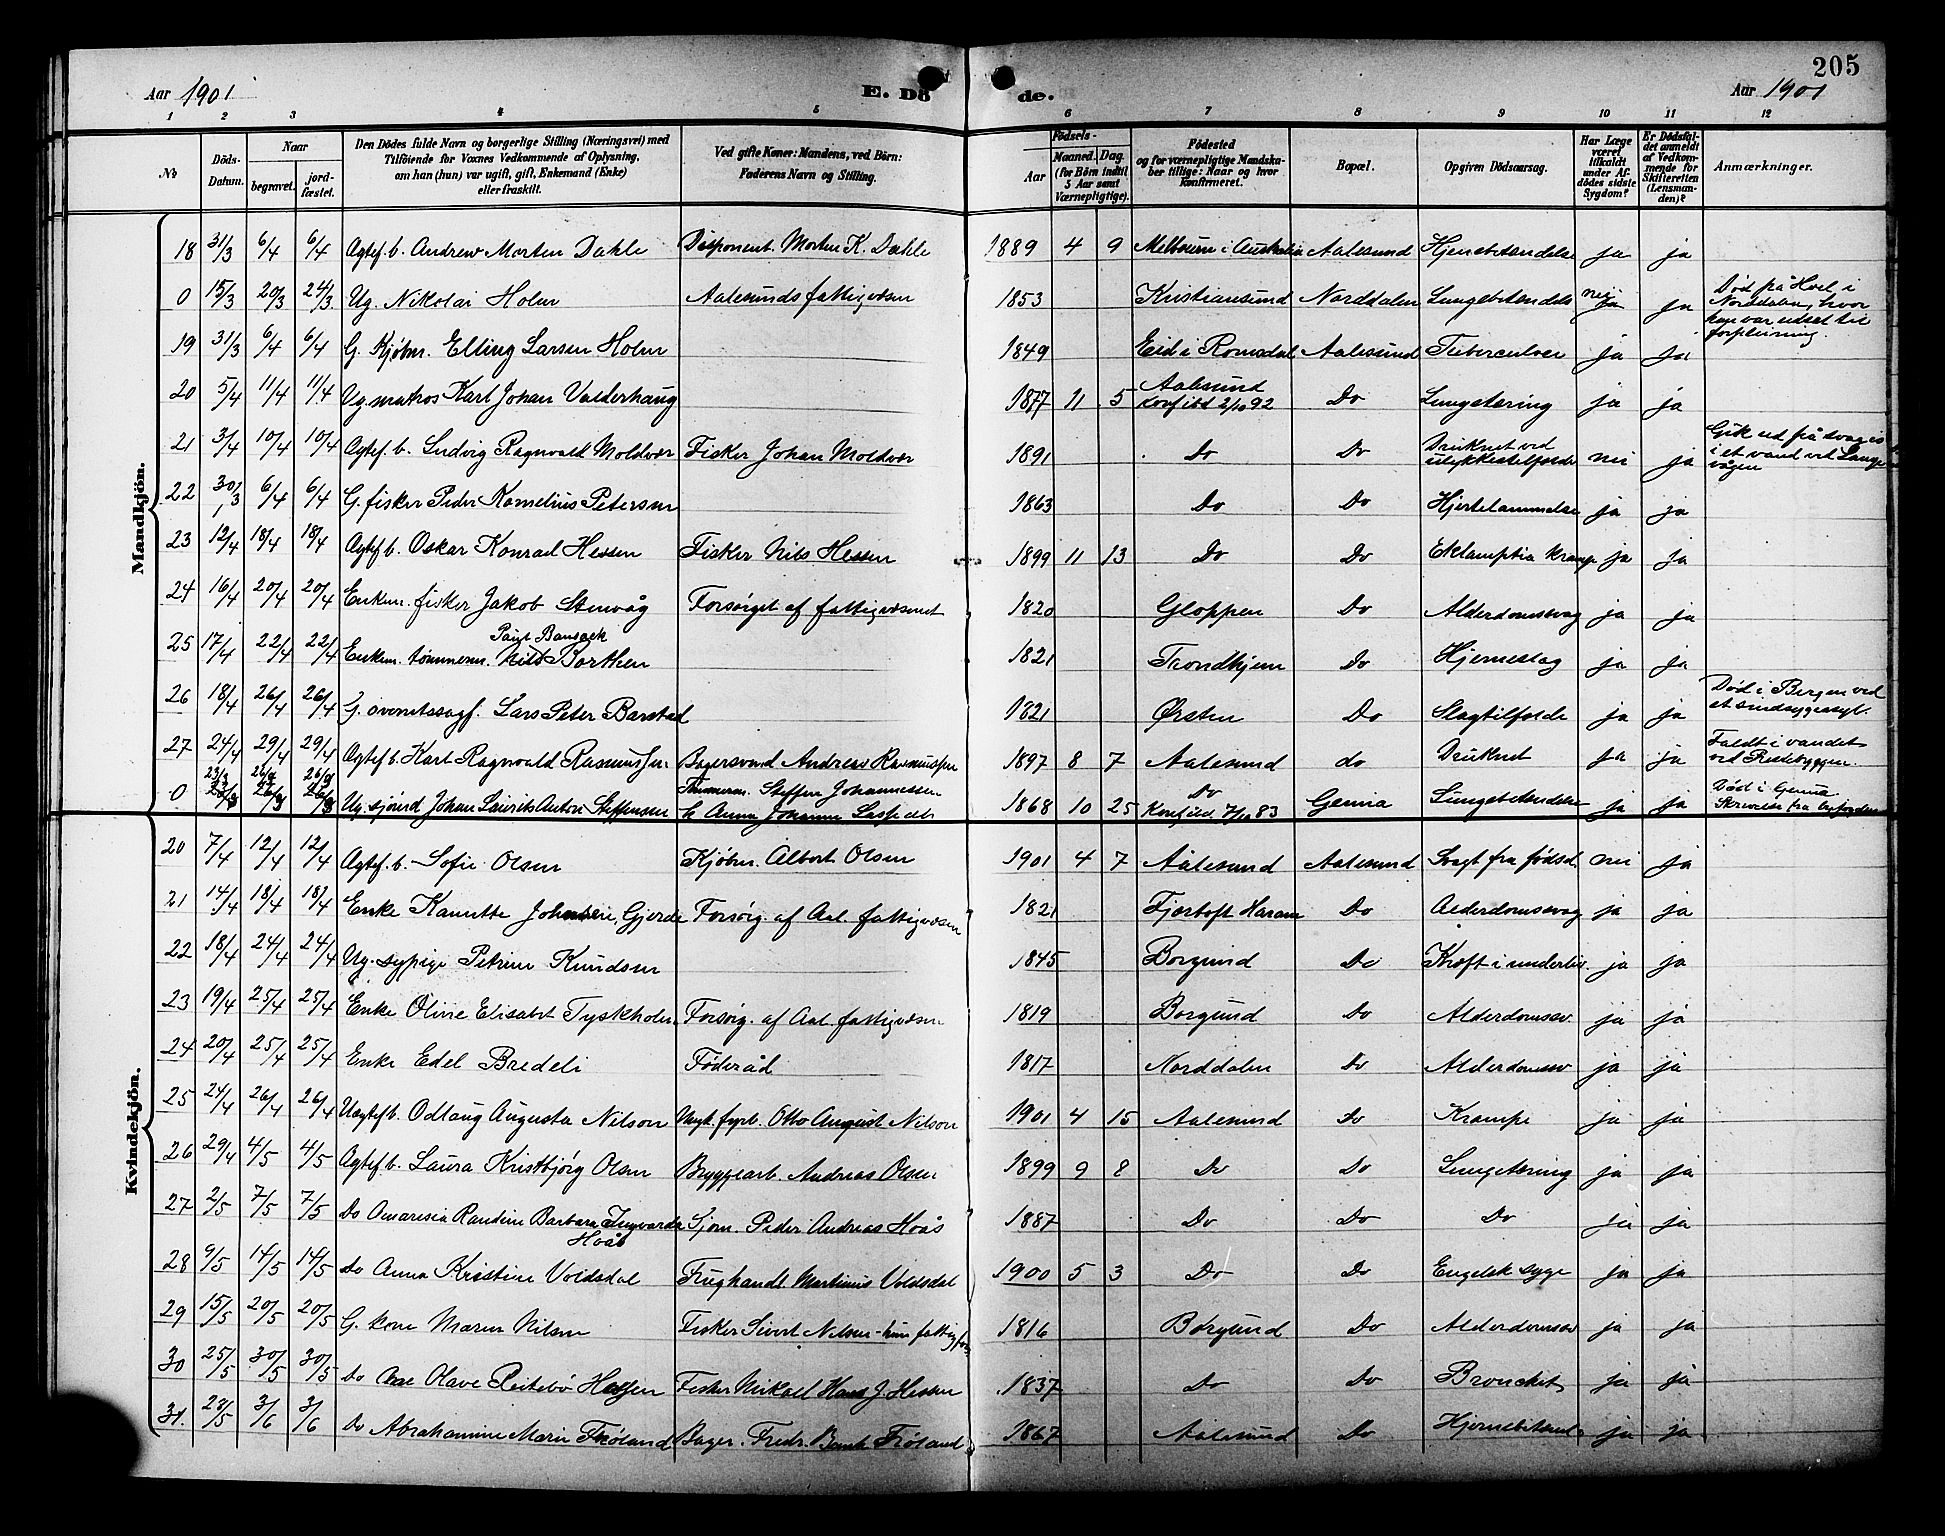 205
Aar 1901
E. Dö de.
Aar 1901
1 2 3 4 5 6 7 8 9 10 11 12
No
Döds-Datum.
Naar
begravet.
jord-fæstet.
Den Dödes fulde Navn og borgerlige Stilling (Næringsvei) med
Tilföiende for Voxnes Vedkommende af Oplysning,
om han (hun) var ugift, gift, Enkemand (Enke)
eller fraskilt.
Ved gifte Koner: Mandens, ved Börn:
Faderens Navn og Stilling.
Födsels-
Aar
Maaned. Dag.
(for Börn indtil
5 Aar samt
Værnepligtige).
Födested
og for værnepligtige Mandska-
ber tillige: Naar og hvor
konfirmeret.
Bopæl.
Opgiven Dödsaarsag.
Har Læge
været
tilkaldt
under Af-
dödes sidste
Sygdom?
Er Dödsfal-
det anmeldt
af Vedkom-
mende for
Skifteretten
(Lensman-
den)?
Anmærkninger.
Mandkjön.
18 31/3 6/4 6/4 Ægtef. b. Andrew Morten Dahle Disponent Morten K. Dahle 1889 4 9 Melbourn i Australia Aalesund Hjernebetændelse ja ja
0 15/3 20/3 24/3 Ug. Nikolai Holm Aalesunds fattigvæsen 1853 Kristiansund Norddalen Lungebetændels nei ja ja Död på Hoel i
Norddalen, hvor
han var udsat til
forpleining.
19 31/3 6/4 6/4 G. Kjöbm. Elling Larsen Holm 1849 Eid i Romsdal Aalesund Tuberculose ja ja
20 5/4 11/4 11/4 Ug. matros Karl Johan Valderhaug 1877 11 5 Aalesund
konf ibd 2/10 92 Do Lungetæring ja ja
21 3/4 10/4 10/4 Ægtef. b. Ludvig Ragnvald Moldvær Fisker Johan Moldvær 1891 Do Do Druknet ved
ulykkestilfælde nei ja Gik ud på svag is
i et vand ved Lange
vågen
22 30/3 6/4 6/4 G. fisker Peder Kornelius Petersen 1863 Do Do Hjertelammelse ja ja
23 12/4 18/4 18/4 Ægtef b. Oskar Konrad Hessen Fisker Nils Hessen 1899 11 13 Do Do Eklamptia Krampe ja ja
24 16/4 20/4 20/4 Enkem. fisker Jakob Stenvåg Forsörget af fattigvæsenet 1820 Gloppen Do Alderdomssvag ja ja
25 17/4 22/4 22/4 Enkem. tömmerm. Nils Borthen 1821 Trondhjem Do Hjerneslag ja ja
26 18/4 26/4 26/4 G. overretssagf. Lars Peter Barstad 1821 Ørsten Do Slagtilfælde ja ja Död i Bergen ved
et sindsygeasyl.
27 24/4 29/4 29/4 Ægtef b. Karl Ragnvald Rasmussen Bagersvend Andreas Rasmussen 1897 8 7 Aalesund do Druknet ja ja Faldt i vandet
ved Ristebryggen.
0 23/3 26/4 26/4 Ug. sjömd Johan Laurits Anton Steffensen Tömmerm. Steffen Johannessen
& Anna Johanna Lasse dt 1868 10 25 Do
Konf ibd. 7/10 83 Genua Lungebetændelse ja ja Död i Genua
Skrivelse fra byfogden
Kvindekjön.
20 7/4 12/4 12/4 Ægtef. b. Sofie Olsen Kjöbm. Albert Olsen 1901 4 7 Aalesund Aalesund Svagt fra fødsel nei ja
21 14/4 18/4 18/4 Enke Kanutte Johnsen, Gjerde Forsörg. af Aal. fattigvæsen 1821 Fjortoft Haram Do Alderdomssvag ja ja
22 18/4 24/4 24/4 Ug. sypige Petrine Knudsen 1845 Borgund Do Kræft i underliv. ja ja
23 19/4 25/4 25/4 Enke Oline Elisabet Tyskholm Forsörg. af Aal fattigvæsen 1819 Borgund Do Alderdomssv. ja ja
24 20/4 25/4 25/4 Enke Edel Bredeli Föderåd 1817 Norddalen Do Alderdomssv ja ja
25 24/4 26/4 26/4 Uægtef b. Odlaug Augusta Nilson Ungk. fyrb. Otto August Nilson 1901 4 15 Aalesund Do Krampe ja ja
26 29/4 4/5 4/5 Ægtef b. Laura Kristbjörg Olsen Bryggearb. Andreas Olsen 1899 9 8 Do Do Lungetæring ja ja
27 2/5 7/5 7/5 Do Randine Barbara Ingvarda
Hoås Sjöm. Peder Andreas Hoås 1887 Do Do Do ja ja
28 9/5 14/5 14/5 Do Anna Kristine Voldsdal Frughandl Martinus Voldsdal 1900 5 3 Do Do Engelsk syge ja ja
29 15/5 20/5 20/5 G. kone Maren Nilsen Fisker Sivert Nilsen 1816 Borgund Do Alderdomssv ja ja
30 25/5 30/5 30/5 Do Ane Olave Reitebö Hessen Fisker Mikael Hans J. Hessen 1837 Do Do Bronchit ja ja
31. 23/5 3/6 3/6 Do Abrahamine Marie Fröland Bager. Fredr. Fröland 1867 Aalesund Do Hjernebetænd. ja ja